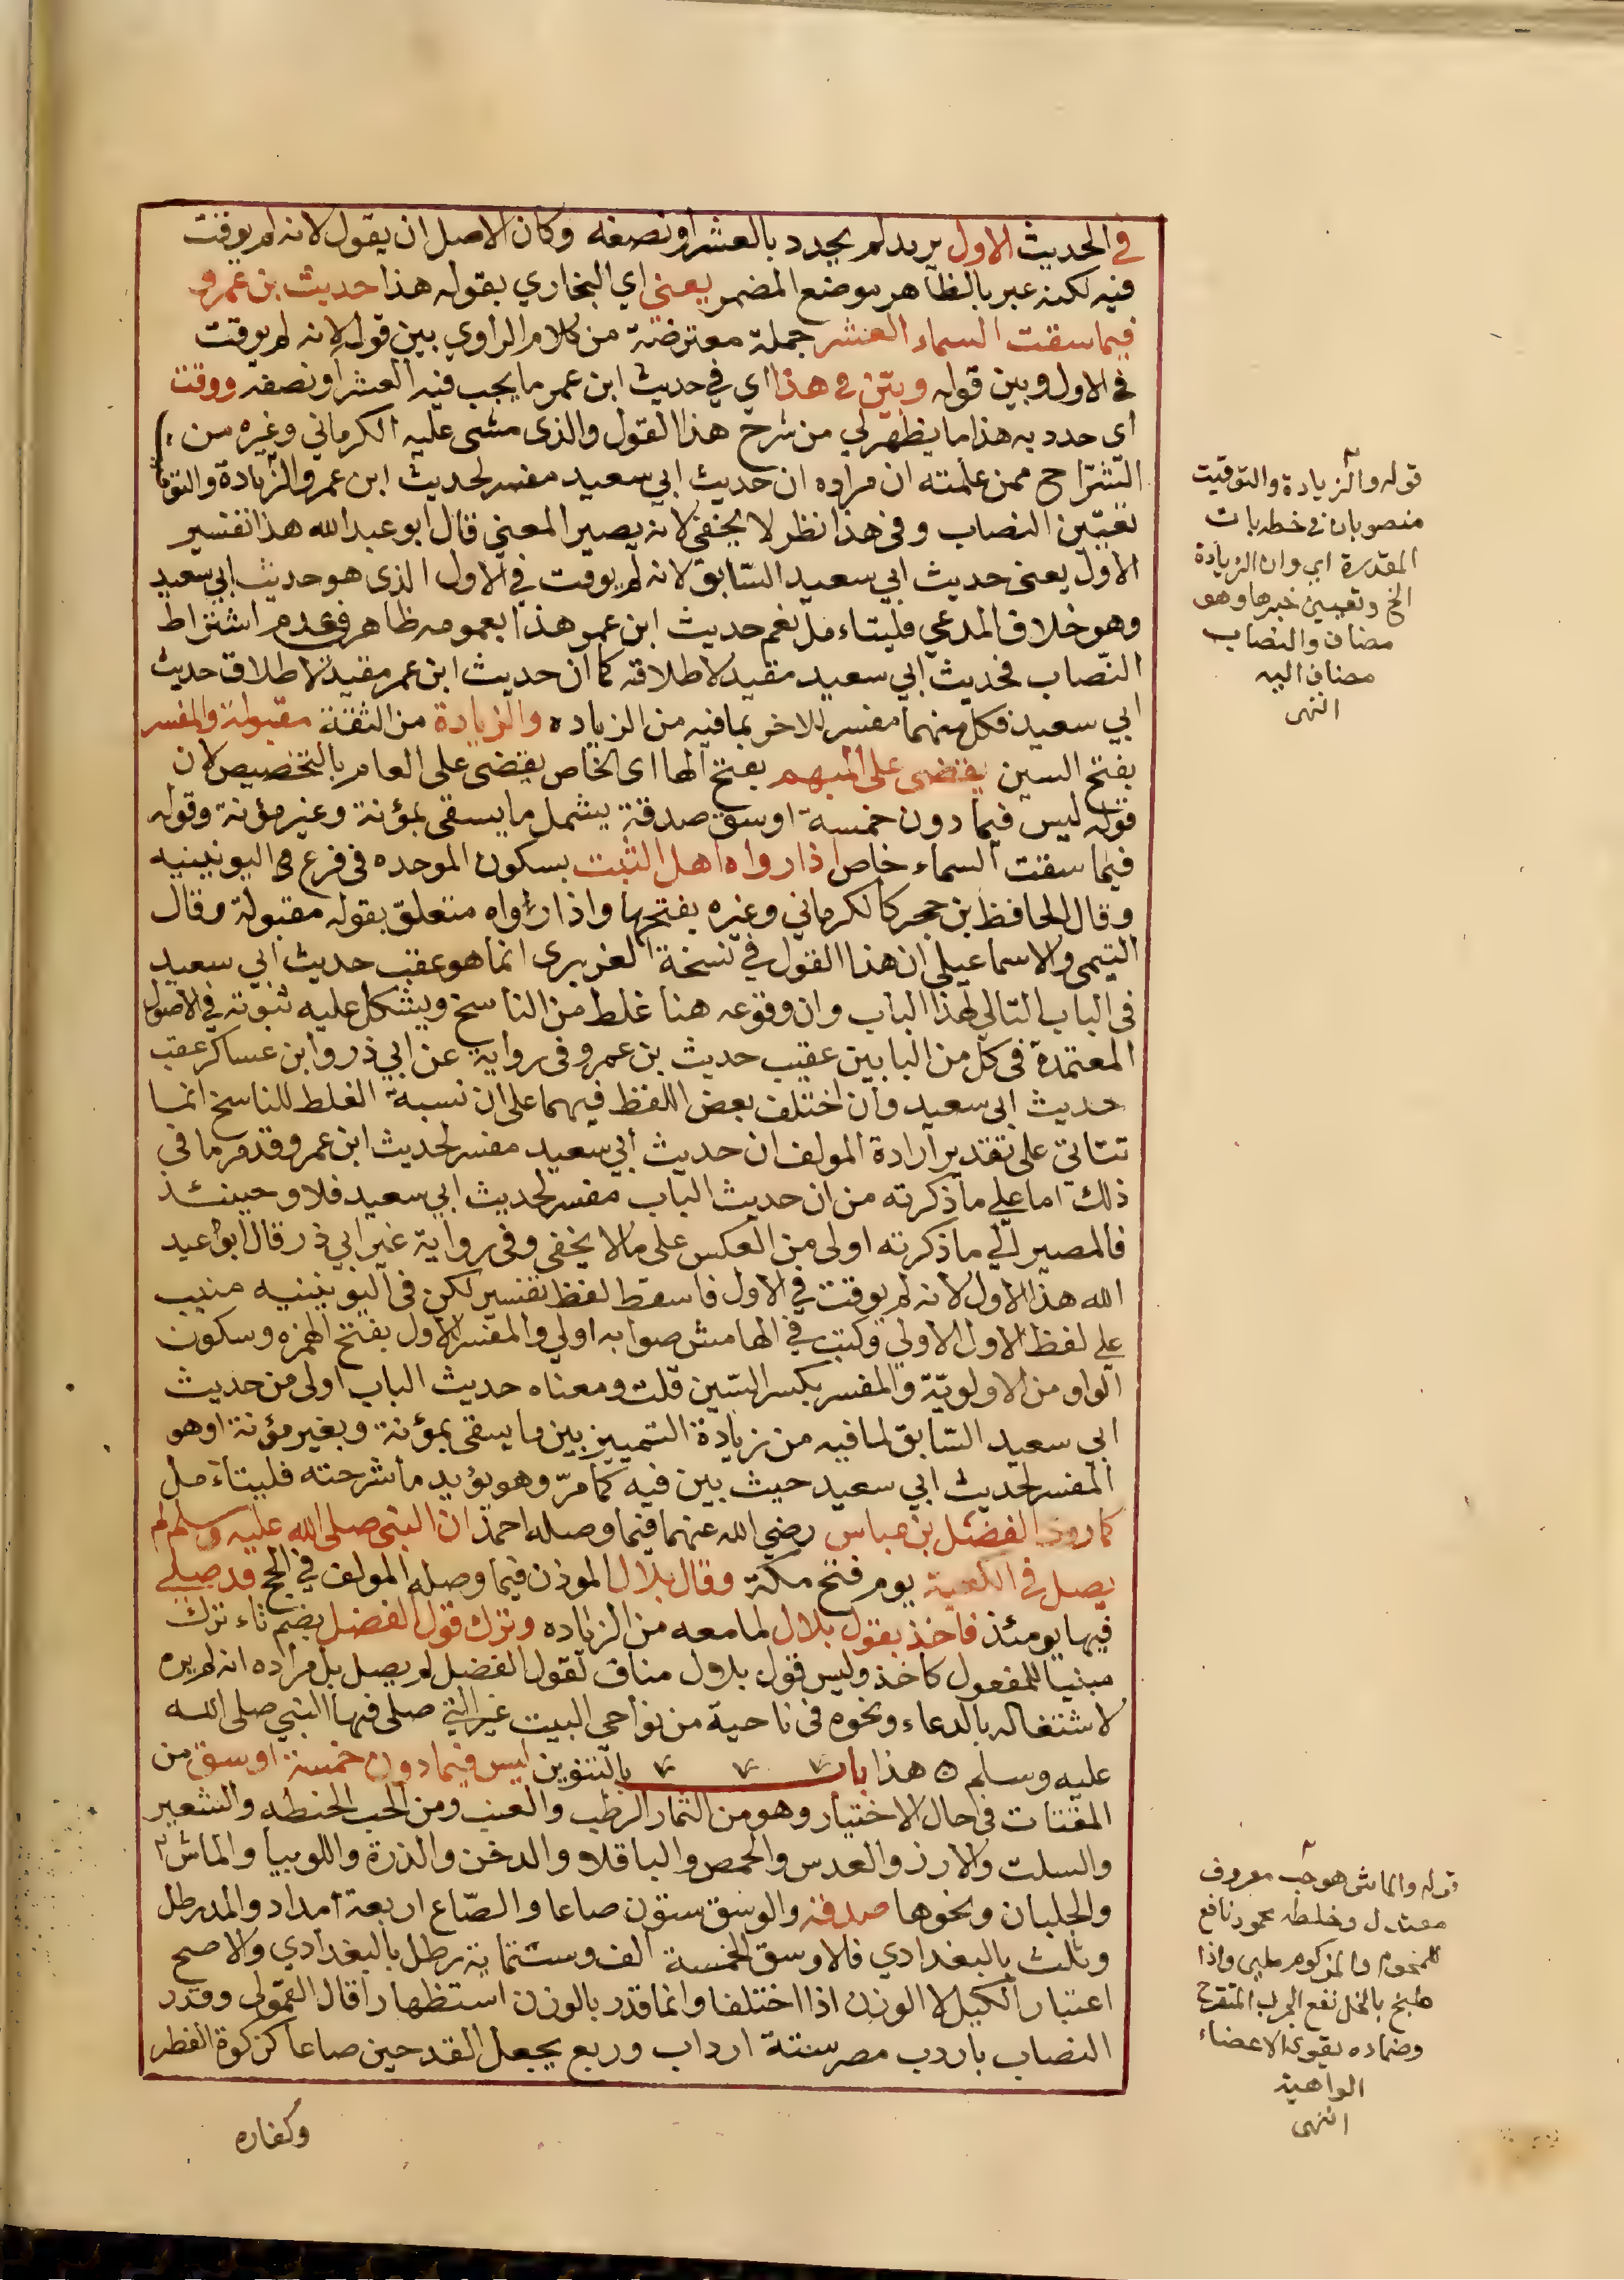 في الحديث الاول يريد لم يحدد بالعشر او نصفه وكان الاصل ان يقول لانه لم يوقت
فيه لكنه عبر بالظاهر موضع المضمر يعني اي البخاري بقوله هذا حديث بن عمر و
فيما سقت السماء العشر جملة معترضة من كلام الراوي بين قوله لانه لم يوقت
في الاول وبين قوله وبين في هذا اي في حديث ابن عمر ما يجب فيه العشر او نصفه ووقت
اي حدد به هذا ما يظهر لي من شرح هذا القول والذى مشى عليه الكرماني وغيره من
الشراح ممن علمته ان مراده ان حديث ابي سعيد مفسر لحديث ابن عمر والزيادة والتوقيت
تعيين النصاب وفي هذا نظر لا يخفى لانه يصير المعني قال ابو عبد الله هذا تفسير
الاول يعنى حديث ابي سعيد السابق لانه لم يوقت في الاول الذى هو حديث ابي سعيد
وهو خلاف المدعي فليتامل نعم حديث ابن عمر هذا بعمومه ظاهر في عدم اشتراط
النصاب فحديث ابي سعيد مقيد لاطلاقه كما ان حديث ابن عمر مقيد لاطلاق حديث
ابي سعيد فكل منهما مفسر للاخر بما فيه من الزياده والزيادة من الثقة مقبولة والمفسر
بفتح السين يقضى على المبهم بفتح الها اى الخاص يقضى على العام بالتخصيص لان
قوله ليس فيما دون خمسة اوسق صدقة يشمل ما يسقى بمؤنة وغير مؤنة وقوله
فيما سقت السماء خاص اذا رواه اهل الثبت بسكون الموحده فى فرع اليونينيه
وقال الحافظ بن حجر كالكرماني وغيره بفتحها واذا رواه متعلق بقوله مقبولة وقال
التيمى والاسماعيلي ان هذا القول في نسخة الفربرى انما هو عقب حديث ابي سعيد
فى الباب التالي لهذا الباب وان وقوعه هنا غلط من الناسخ ويشكل عليه ثبوته في الاصول
المعتمدة فى كل من البابين عقيب حديث بن عمر وفى رواية عن ابي ذر وابن عساكر عقب
حديث ابى سعيد وان اختلف بعض اللفظ فيهما على ان نسبة الغلط للناسخ انما
تتاتي على تقدير ارادة المولف ان حديث ابي سعيد مفسر لحديث ابن عمر وقد مر ما فى
ذلك اما على ما ذكرته من ان حديث الباب مفسر لحديث ابي سعيد فلا وحينئذ
فالمصير الي ما ذكرته اولى من العكس على ما لا يخفى وفى رواية غير ابي ذر قال ابو عبد
الله هذا الاول لانه لم يوقت في الاول فاسقط لفظ تفسير لكن فى اليونينيه ضبب
علي لفظ الاول الاولي وكتب في الهامش صوابه اولي والمفسر الاول بفتح الهمزه وسكون
الواو من الاولوية والمفسر بكسر السين قلت ومعناه حديث الباب اولى من حديث
ابي سعيد السابق لما فيه من زيادة التمييز بين ما يسقى بمؤنة وبغير مؤنة او هو
المفسر لحديث ابي سعيد حيث بين فيه كما مر وهو يؤيد ما شرحته فليتامل
كما روى الفضل بن عباس رضي الله عنهما فيما وصله احمد ان النبى صلى الله عليه وسلم لم
يصل في الكعبة يوم فتح مكة وقال بلال الموذن فيما وصله المولف في الحج قد صلى
فيها يومئذ فاخذ بقول بلال لما معه من الزياده وترك قول الفضل بضم تاء ترك
مبنيا للمفعول كاخذ وليس قول بلال مناف لقول الفضل لم يصل بل مراده انه لم يره
لاشتغاله بالدعاء ونحوه فى ناحية من نواحي البيت غير التي صلى فيها النبي صلى الله
عليه وسلم ه هذا باب بالتنوين ليس فيما دون خمسة اوسق من
المقتات فى حال الاختيار وهو من الثمار الرطب والعنب ومن الحب الحنطه والشعير
والسلت والارز والعدس والحمص والباقلا والدخن والذرة واللوبيا والماش
والجلبان ونحوها صدقه والوسق ستون صاعا والصاع اربعة امداد والمد رطل
وثلث بالبغدادي فالاوسق الخمسة الف وستمائة رطل بالبغدادي والاصح
اعتبار الكيل لا الوزن اذا اختلفا وانما قدر بالوزن استظهارا قال القمولى وقدر
النصاب باردب مصر ستة ارداب وربع يجعل القدحين صاعا كزكوة الفطر
وكفاره
قوله والزيادة والتوقيت
منصوبان في خطه بان
المقدرة اي وان الزيادة
الخ وتعيين خبرها وهو
مضاف والنصاب
مضاف اليه
انتهى
قوله والماش هو حب معروف
معتدل وخلطه محمود نافع
للمحموم والمزكوم ملين واذا
طبخ بالخل نفع الجرب المتقرح
وضماده يقوي الاعضاء
الواهية
انتهى